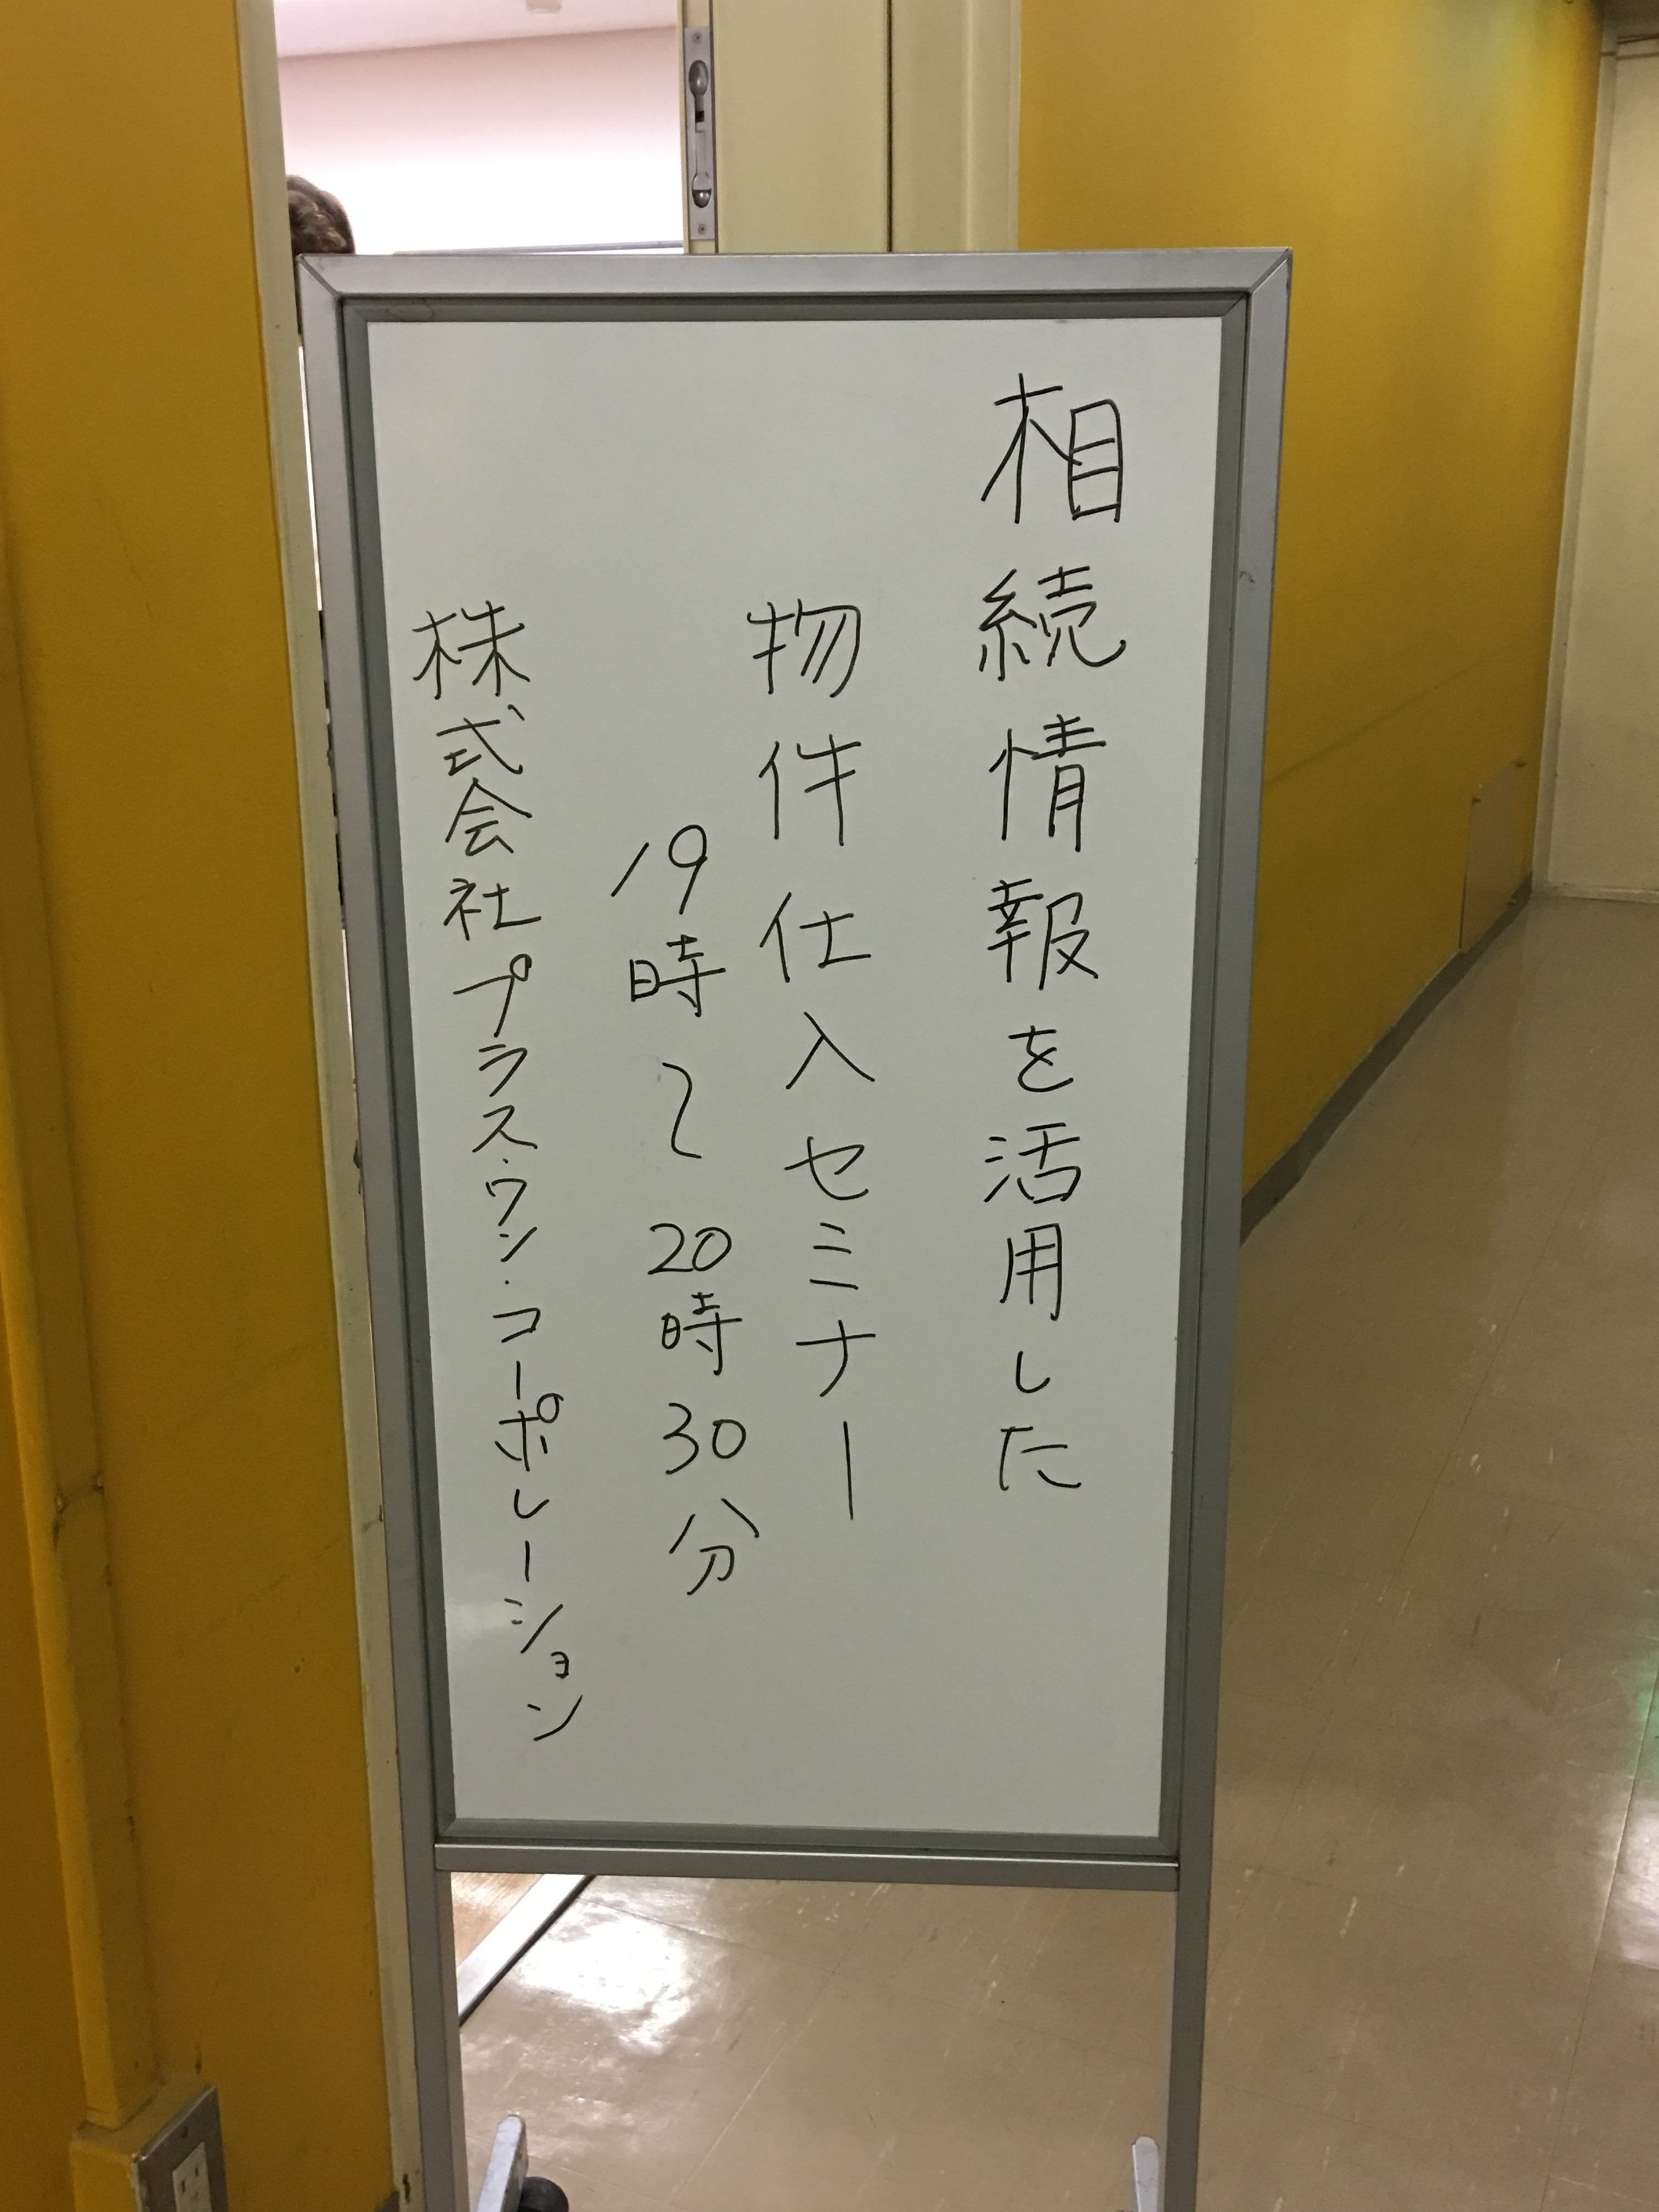 相続情報を活用した
物件仕入セミナー
19時〜20時30分
株式会社プラス・ワン・コーポレーション